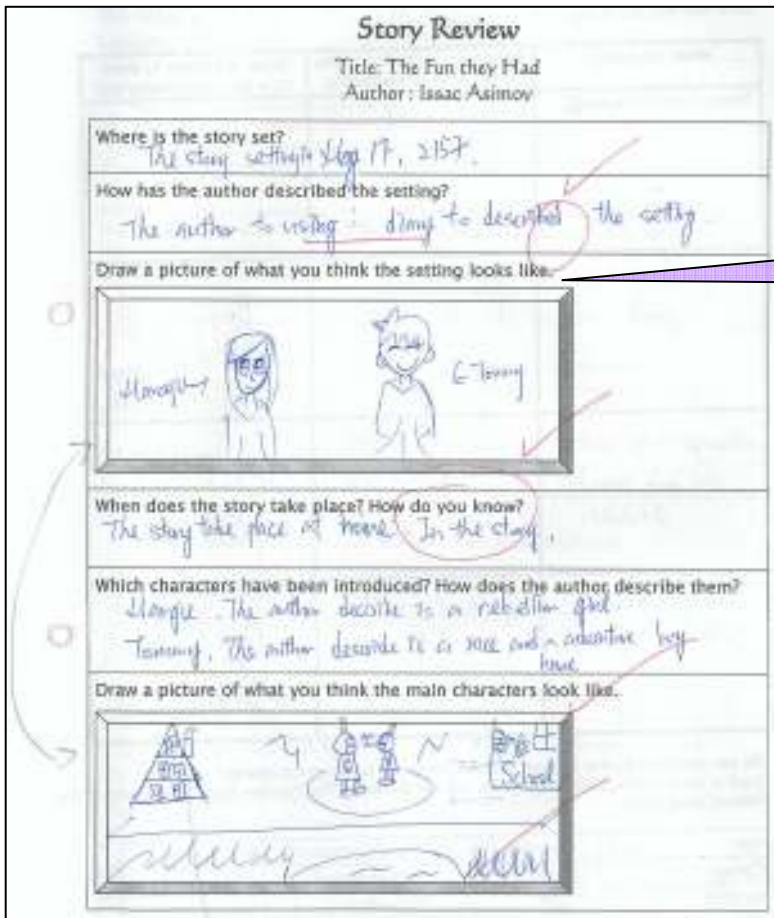 Story Review
Title: The Fun they Had
Author : Issac Asimov
Where is the story set?
The story setting is May 17, 2157.
How has the author described the setting?
The author to using diary to described the setting
Draw a picture of what you think the setting looks like.
Tommy
When does the story take place? How do you know?
The story take place at home In the story.
Which characters have been introduced? How does the author describe them?
The author describe is a rebellion girl.
Tommy, The author describe is a nice and a boy
Draw a picture of what you think the main characters look like.
School